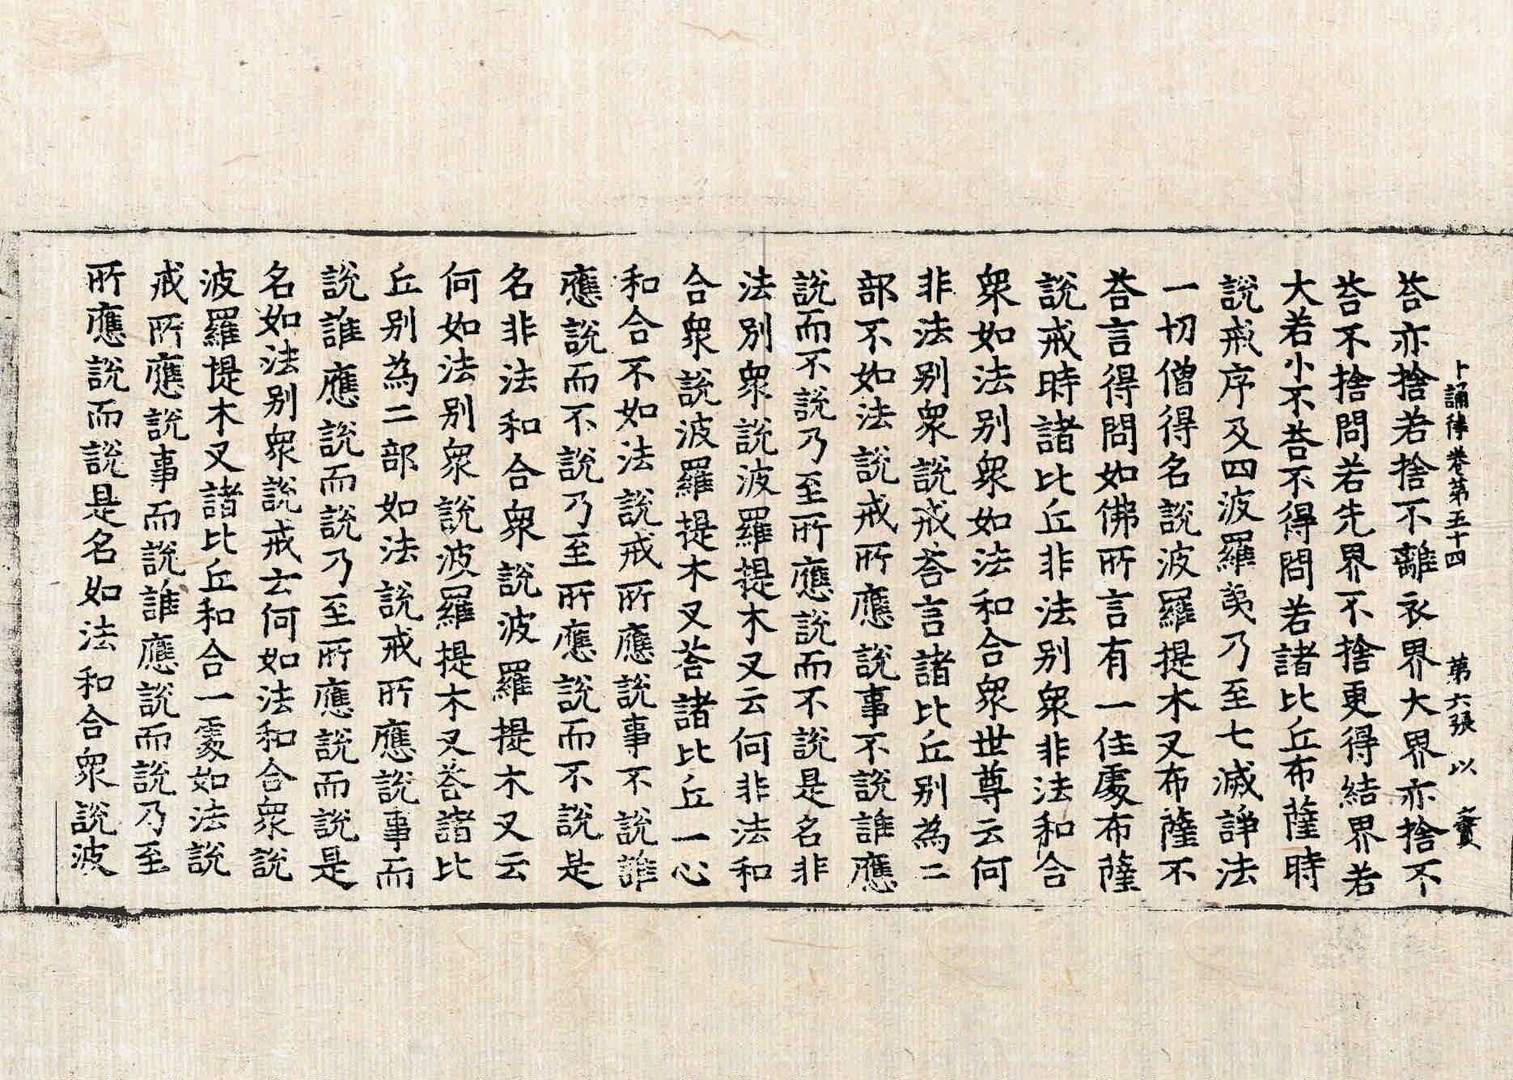 十誦律卷第五十四 第六張 以
荅亦捨若捨不離衣界大界亦捨不
荅不捨問若先界不捨更得結界若
大若小不荅不得問若諸比丘布薩時
說戒序及四波羅夷乃至七滅諍法
一切僧得名說波羅提木叉布薩不
荅言得問如佛所言有一住處布薩
說戒時諸比丘非法別衆非法和合
衆如法別衆如法和合衆世尊云何
非法別衆說戒荅言諸比丘別為二
部不如法說戒所應說事不說誰應
說而不說乃至所應說而不說是名非
法別衆說波羅提木叉云何非法和
合衆說波羅提木叉荅諸比丘一心
和合不如法說戒所應說事不說誰
應說而不說乃至所應說而不說是
名非法和合衆說波羅提木叉云
何如法別衆說波羅提木叉荅諸比
丘別為二部如法說戒所應說事而
說誰應說而說乃至所應說而說是
名如法別衆說戒云何如法和合衆說
波羅提木叉諸比丘和合一處如法說
戒所應說事而說誰應說而說乃至
所應說而說是名如法和合衆說波